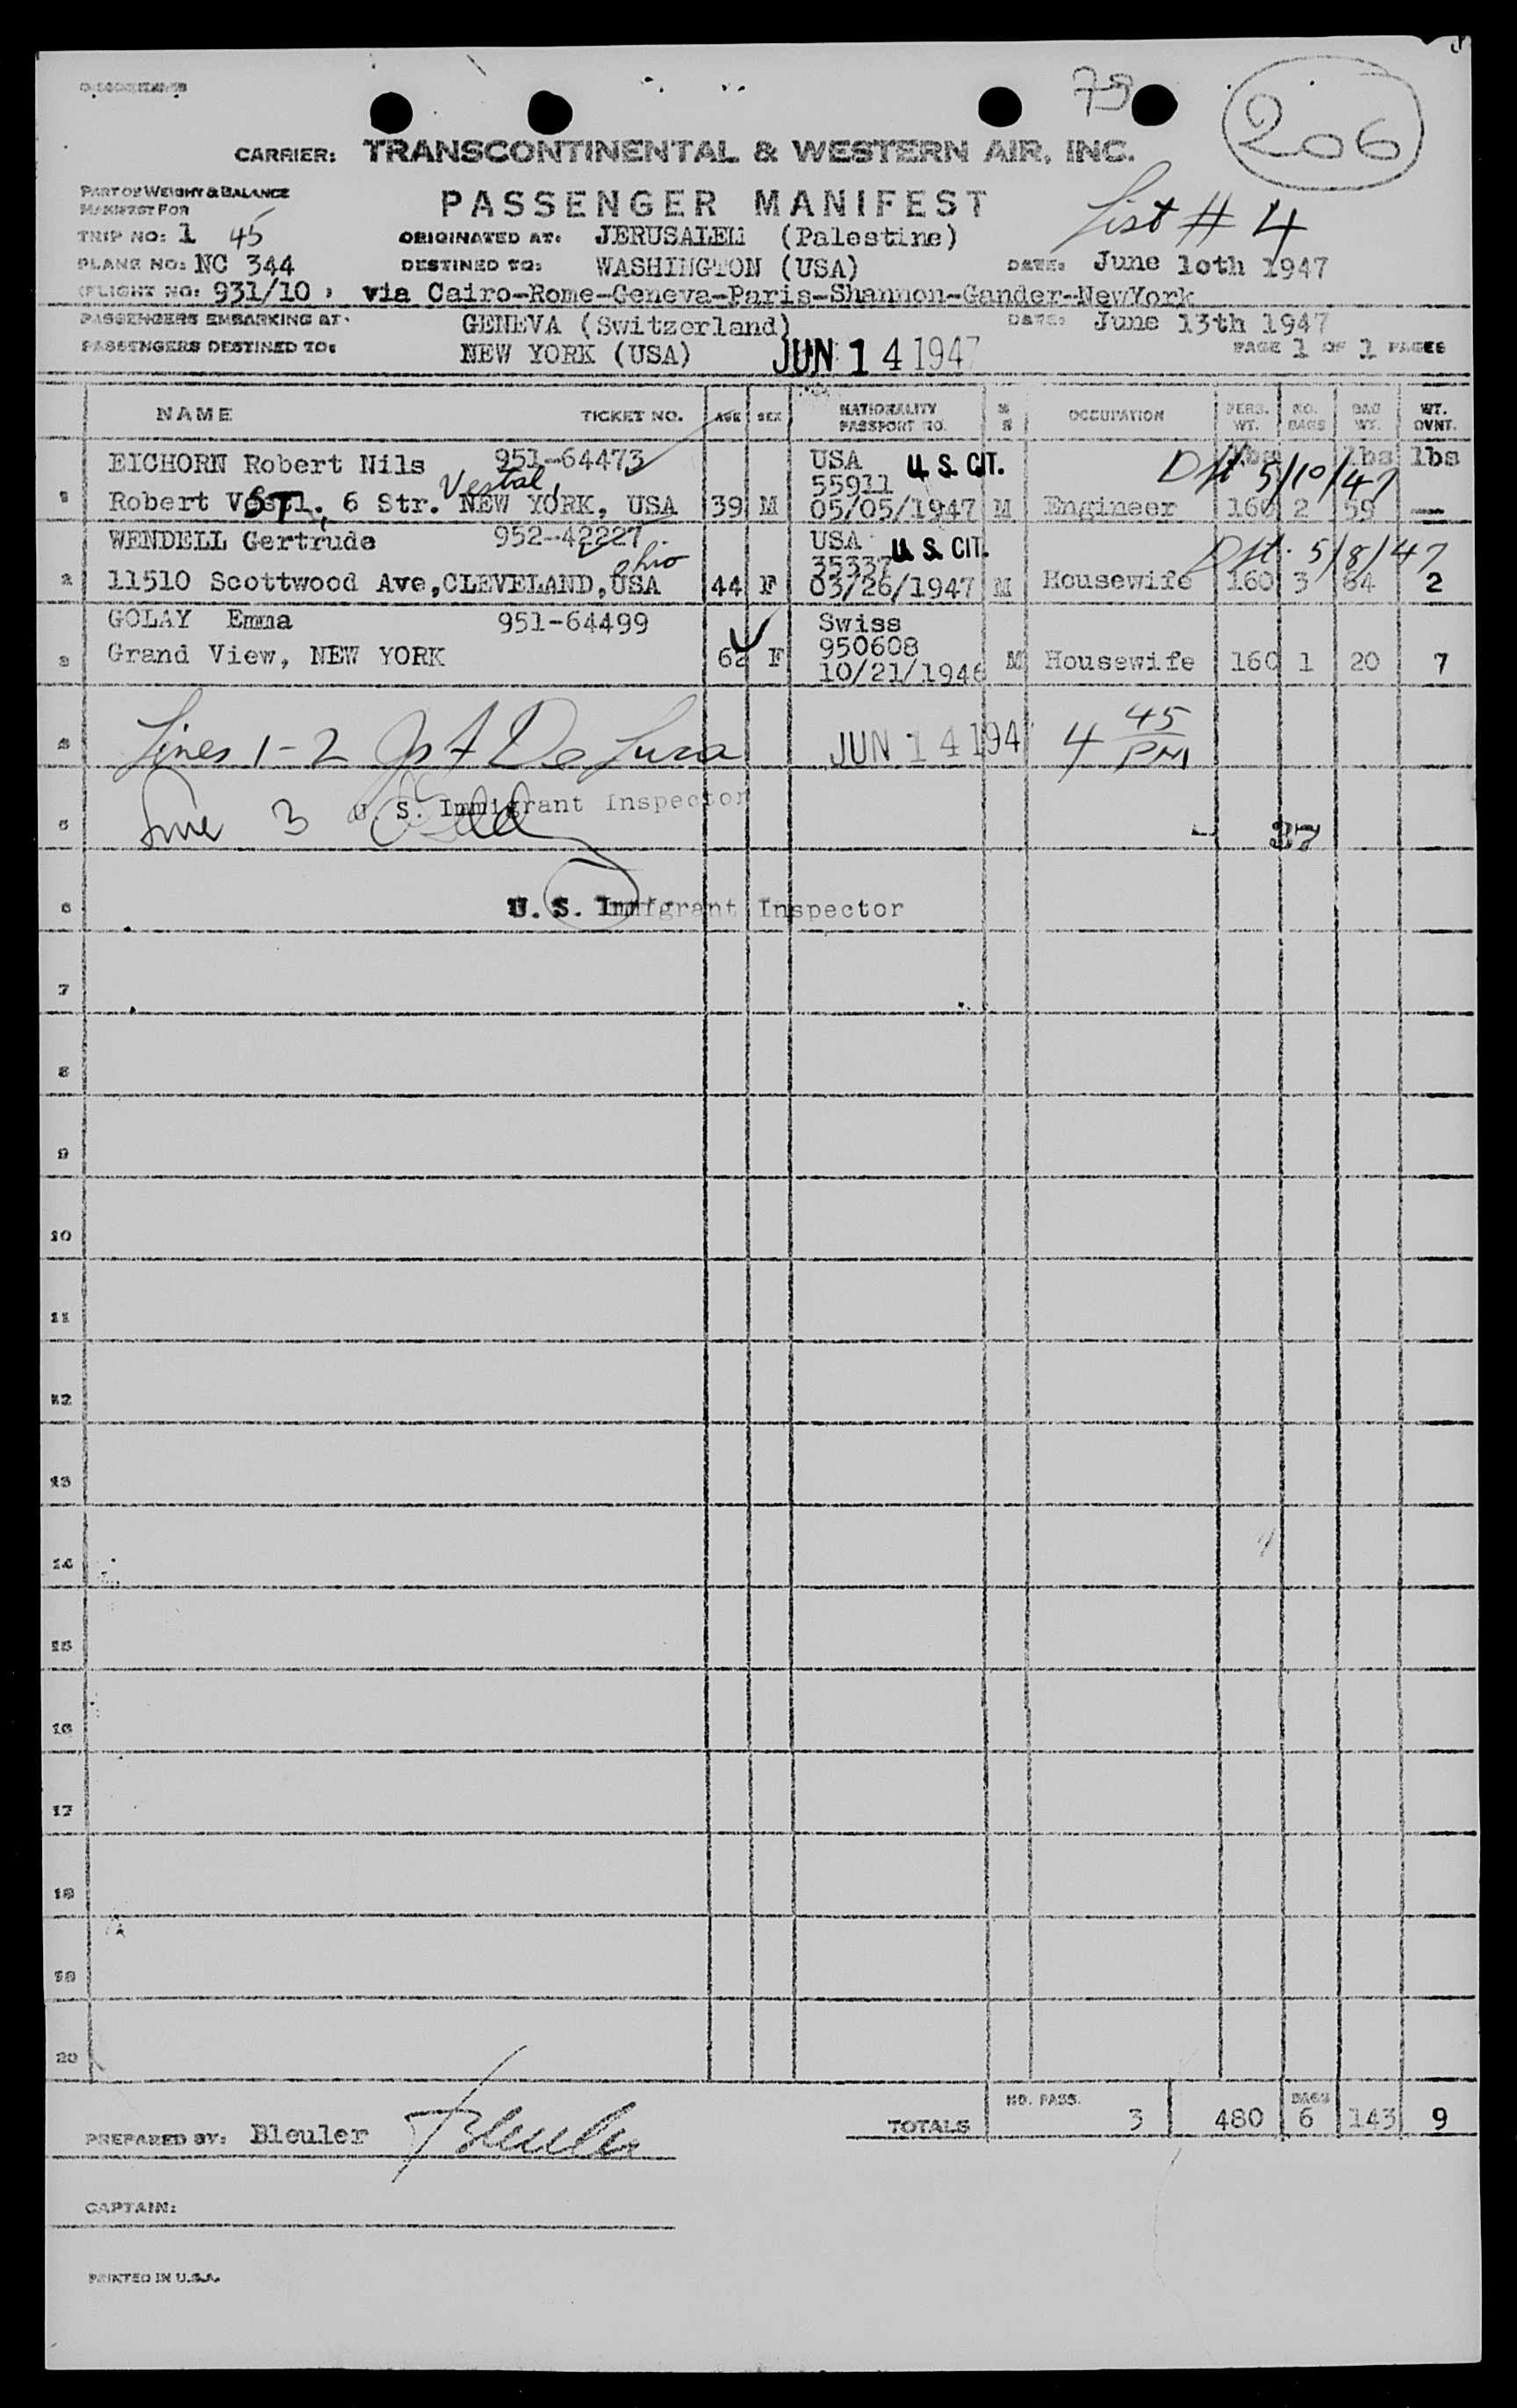 75
206
CARRIER: TRANSCONTINENTAL & WESTERN AIR, INC.
PART OF WEIGHT & BALANCE
MANIFEST FOR
PASSENGER MANIFEST
List # 4
TRIP NO: 1 45
ORIGINATED AT: JERUSALEM (Palestine)
PLANE NO: NC 344
DESTINED TO: WASHINGTON (USA)
DATE: June 10th 1947
FLIGHT NO: 931/10, via Cairo-Rome-Geneva-Paris-Shannon-Gander-NewYork
PASSENGERS EMBARKING AT: GENEVA (Switzerland)
DATE: June 13th 1947
PASSENGERS DESTINED TO: NEW YORK (USA)
JUN 14 1947
PAGE 1 OF 1 PAGES
NAME TICKET NO. AGE SEX NATIONALITY PASSPORT NO. OCCUPATION PERS. WT. NO. BAGS BAG WT. WT. OVNT.
EICHORN Robert Nils 951-64473 USA U.S. CIT. lbs lbs lbs
Vestal, 55911 Dpt. 5/10/47
1 Robert ST., 6 Str. NEW YORK, USA 39 M 05/05/1947 M Engineer 160 2 59 —
WENDELL Gertrude 952-42227 USA U.S. CIT.
Ohio 35337 Dpt. 5/8/47
2 11510 Scottwood Ave,CLEVELAND,USA 44 F 03/26/1947 M Housewife 160 3 64 2
GOLAY Emma 951-64499 Swiss
950608
3 Grand View, NEW YORK 62 F 10/21/1946 M Housewife 160 1 20 7
Lines 1-2 De Luca JUN 14 194 4 45 PM
5 U. S. Immigrant Inspector
Line 3
37
6 U. S. Immigrant Inspector
7
8
9
10
11
12
13
14
15
16
17
18
19
20
TOTALS NO. PASS. 3 480 BAGS 6 143 9
PREPARED BY: Bleuler Bleuler
CAPTAIN:
PRINTED IN U.S.A.